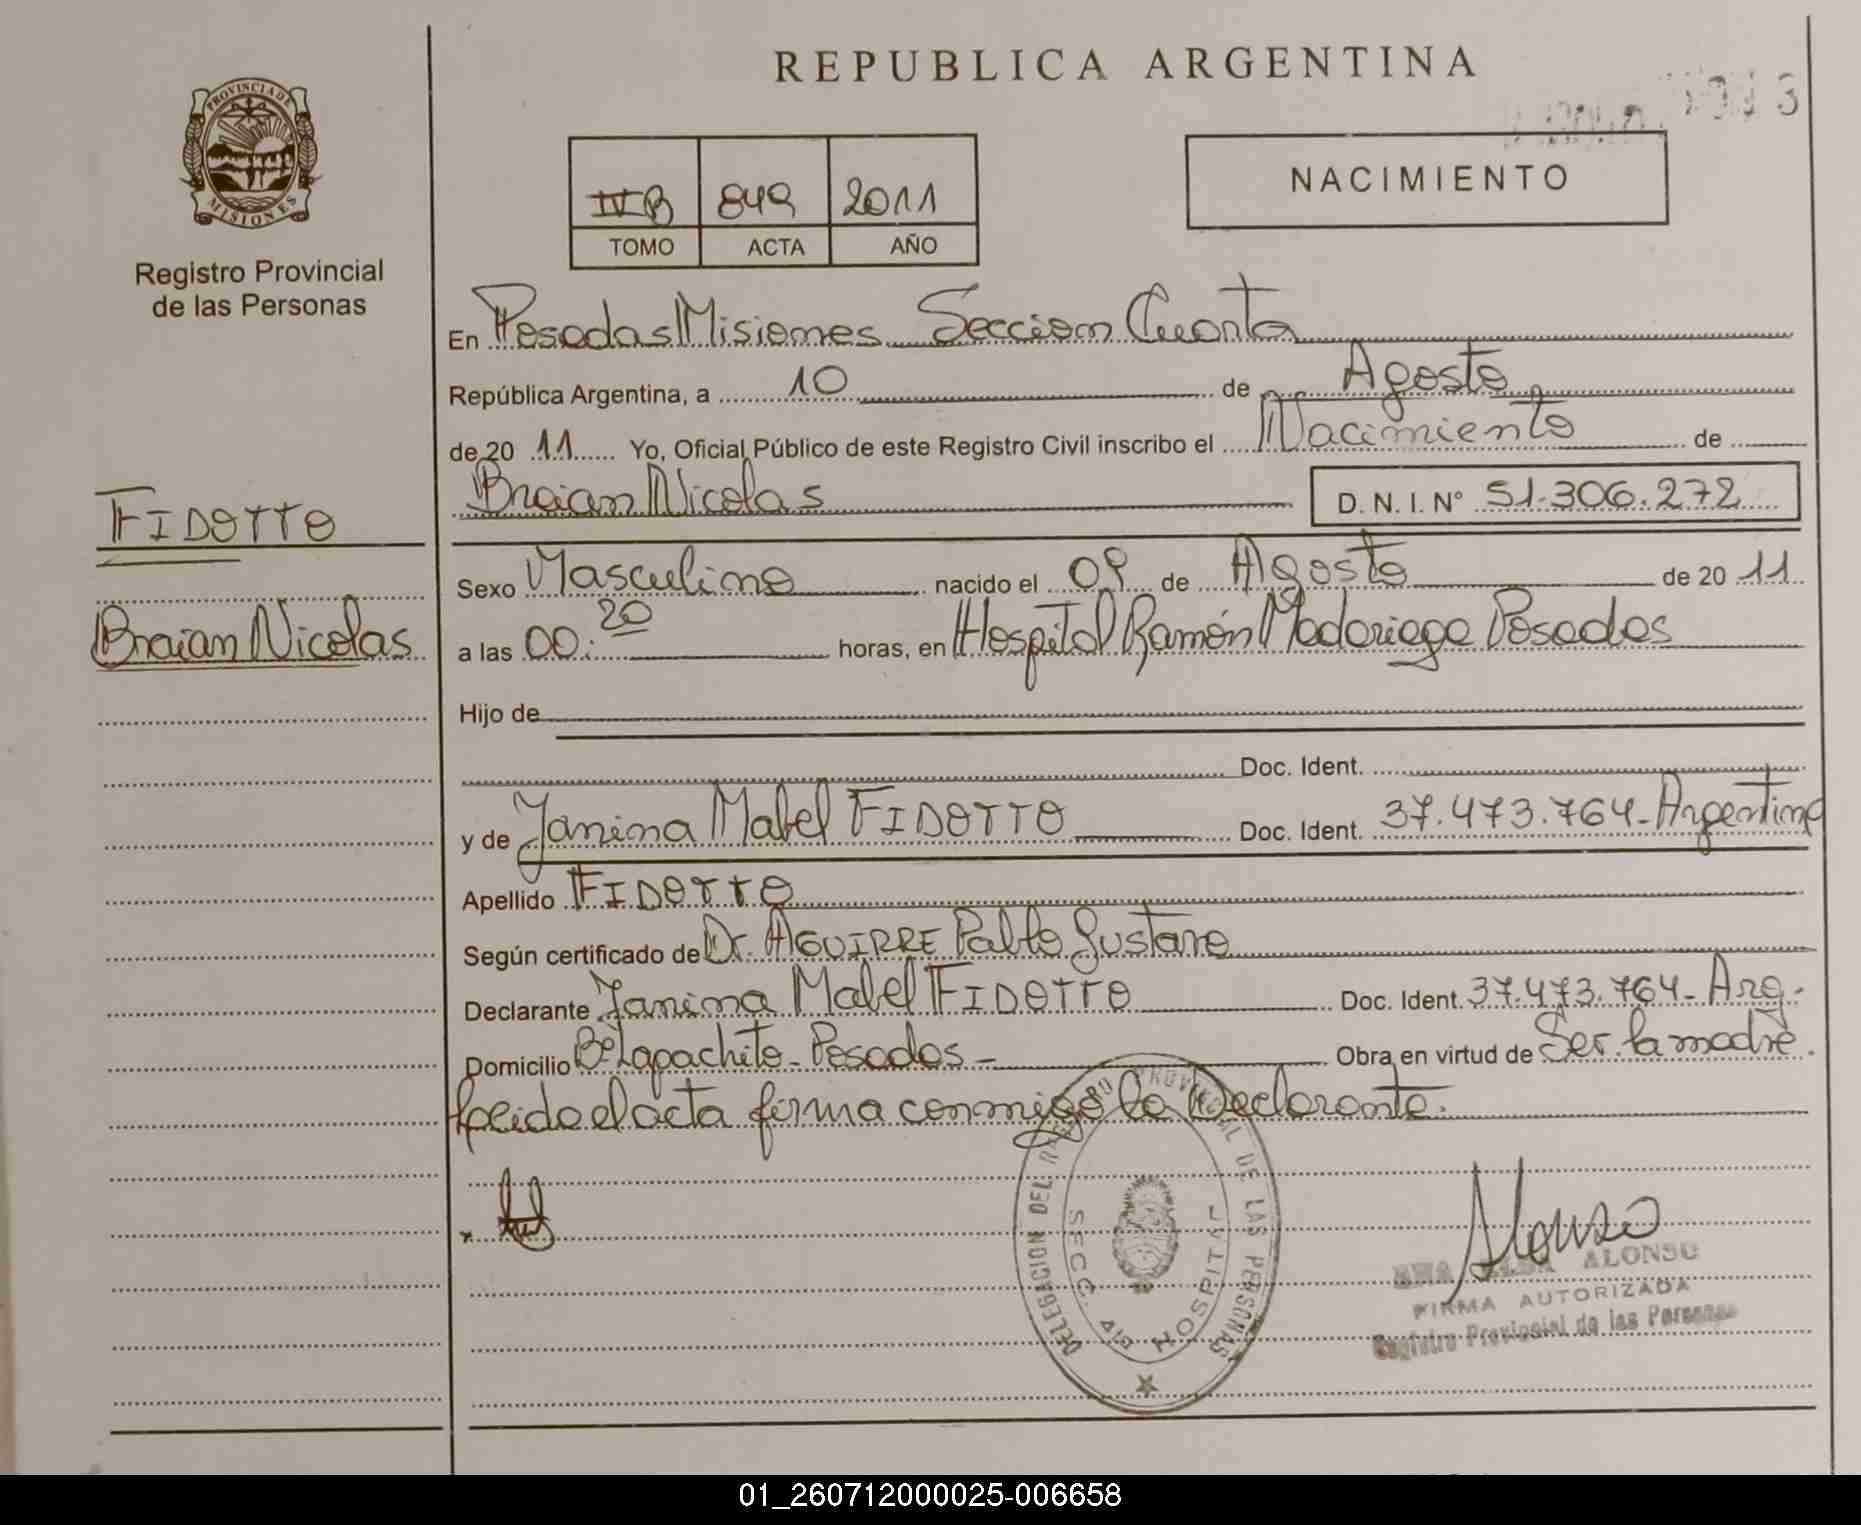 REPUBLICA ARGENTINA
PROVINCIA DE MISIONES
Registro Provincial
de las Personas
IVB 849 2011
TOMO ACTA AÑO
NACIMIENTO
En Posadas Misiones Seccion Cuarta
República Argentina, a 10 de Agosto
de 20 11 Yo, Oficial Público de este Registro Civil inscribo el Nacimiento de
Braian Nicolas D. N. I. N° 51.306.272
FIDOTTO
Braian Nicolas
Sexo Masculino nacido el 09 de Agosto de 20 11
a las 00:20 horas, en Hospital Ramón Madariaga Posadas
Hijo de
Doc. Ident.
y de Janina Mabel FIDOTTO Doc. Ident. 37.473.764- Argentina
Apellido FIDOTTO
Según certificado de Dr. AGUIRRE Pablo Gustavo
Declarante Janina Mabel FIDOTTO Doc. Ident. 37.473.764- Arg.
Domicilio B° Lapachito - Posadas - Obra en virtud de Ser la madre.
Leido el acta firma conmigo la Declarante.
DELEGACION DEL REGISTRO PROVINCIAL DE LAS PERSONAS
SECC. 4ta HOSPITAL
Alonso
ALONSO
FIRMA AUTORIZADA
Registro Provincial de las Personas
01_260712000025-006658